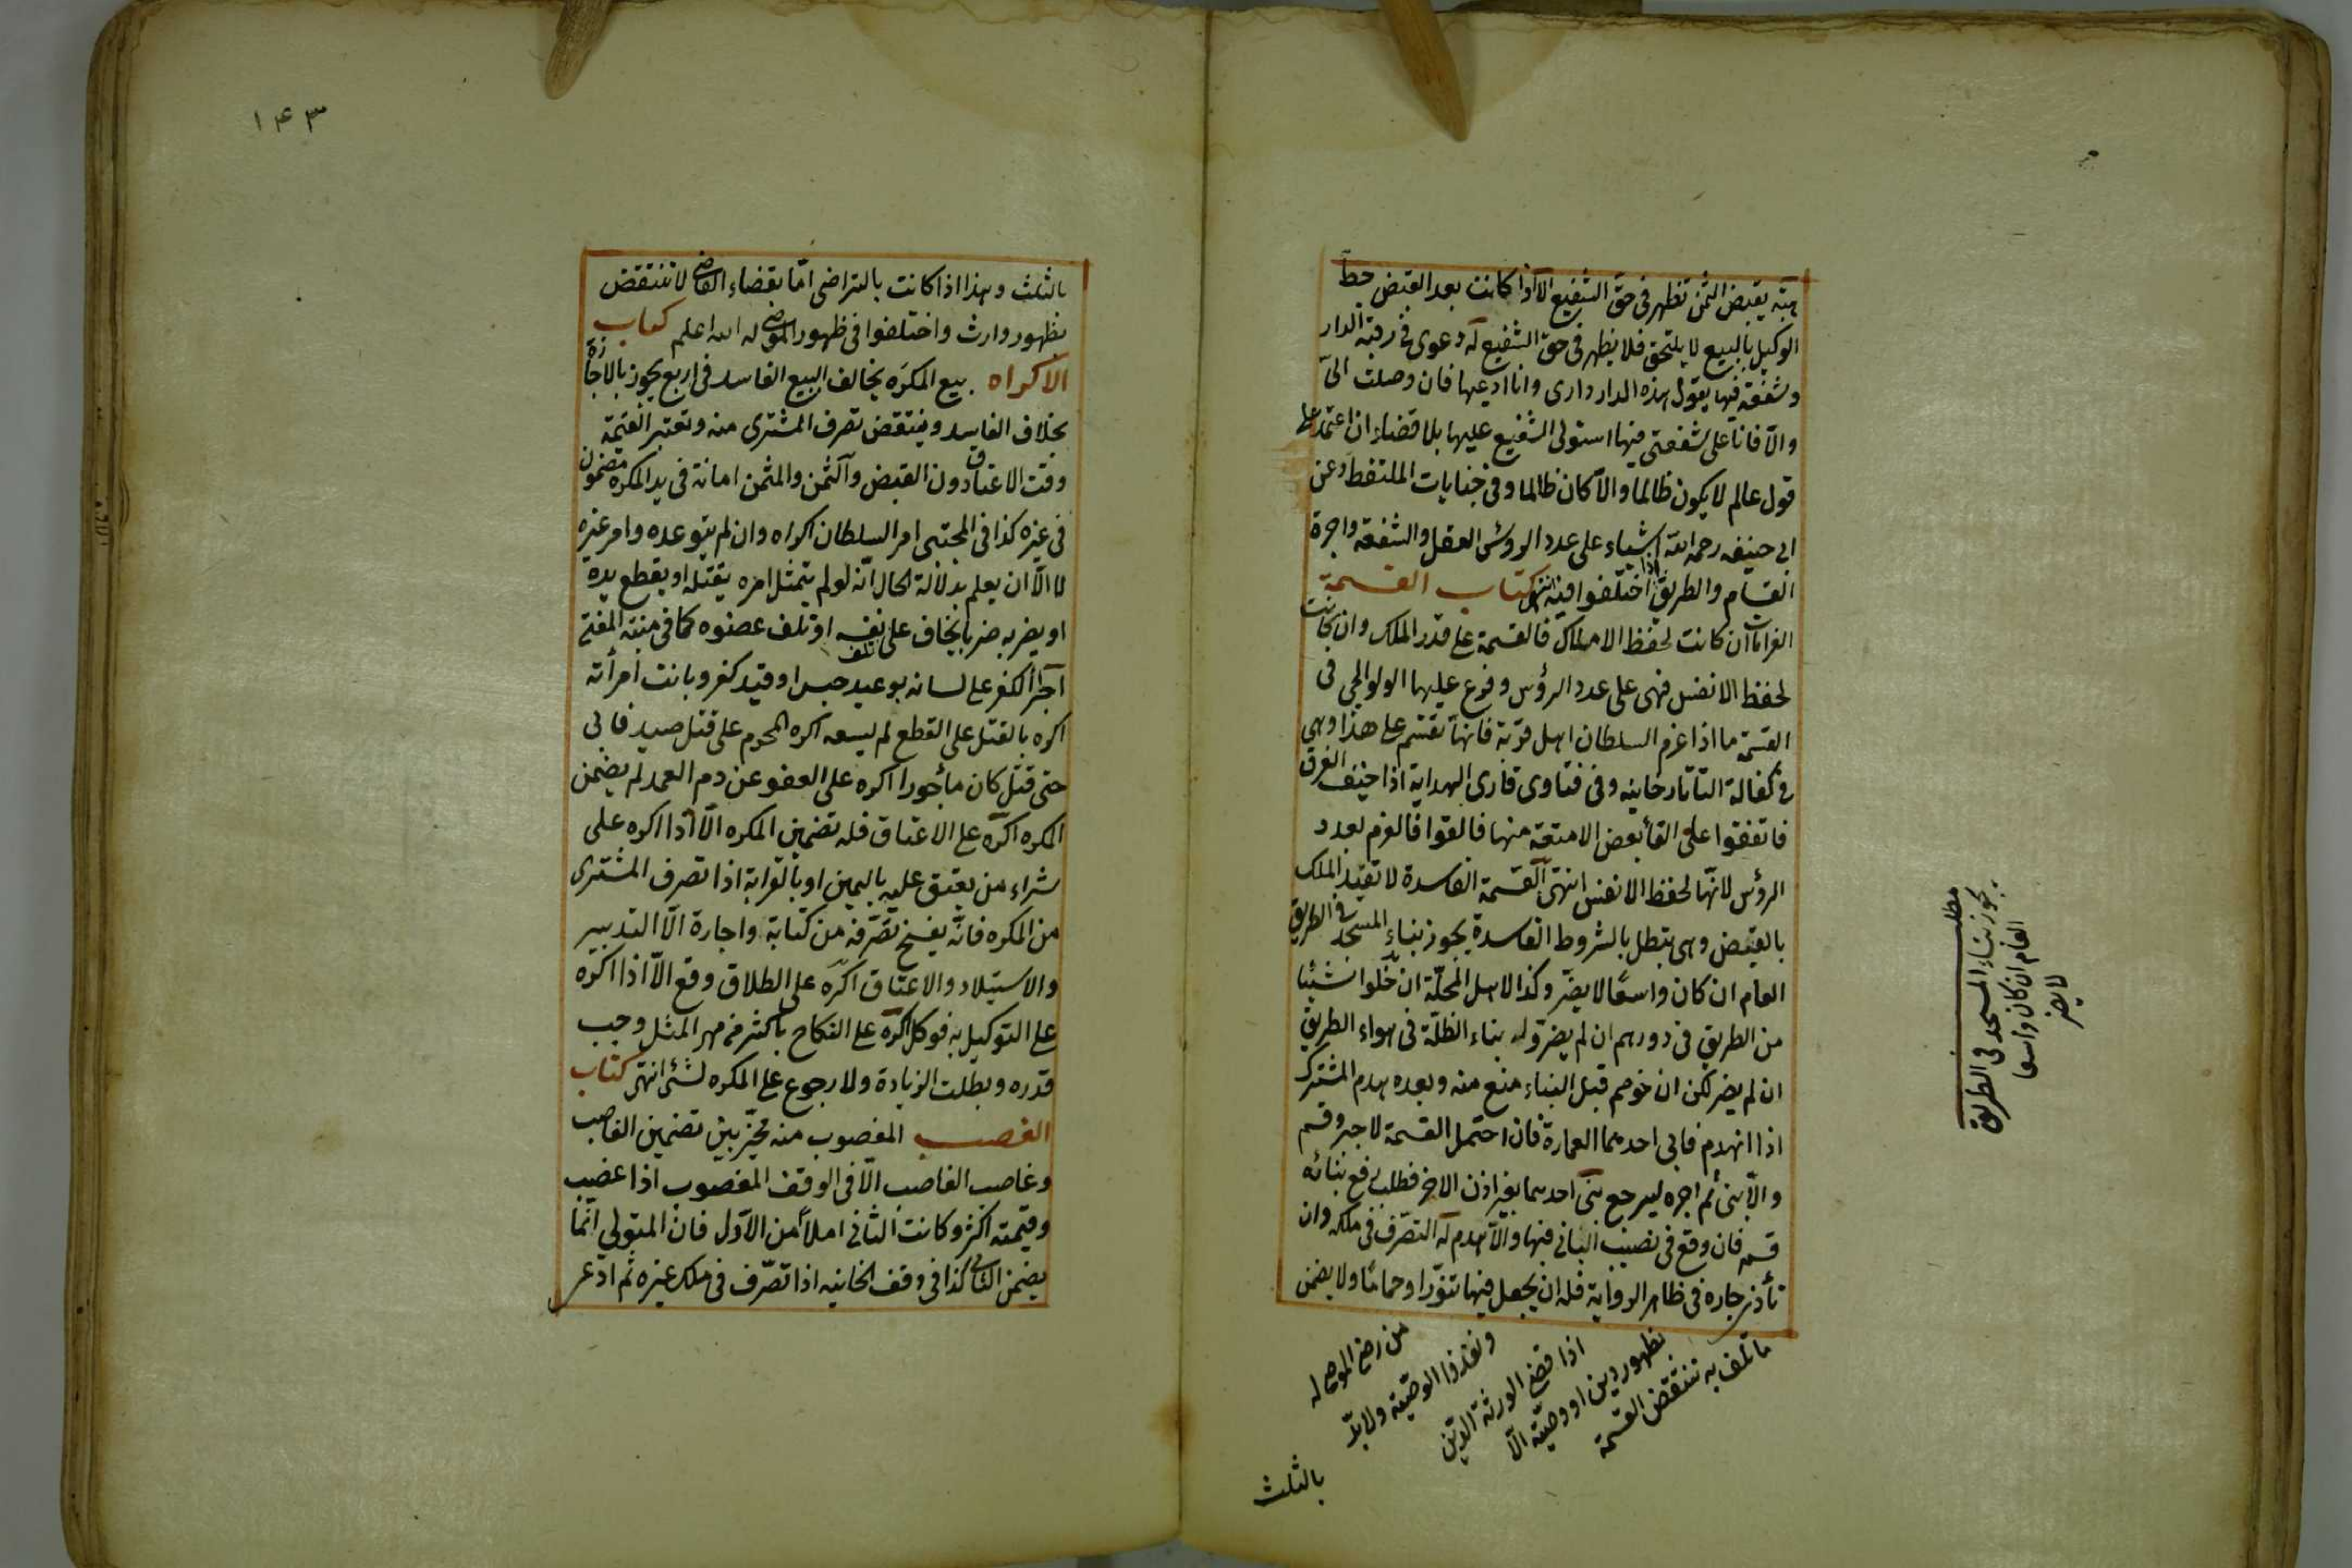 هبته بقبض الثمن تظهر فى حق الشفيع الا اذا كانت بعد القبض حط
الوكيل بالبيع لا يلتحق فلا يظهر فى حق الشفيع له دعوى فى رقبة الدار
وشفعة فيها يقول هذه الدار دارى وانا ادعيها فان وصلت الى
والا فانا على شفعتى فيها استولى الشفيع عليها بلا قضاء ان اعتمد على
قول عالم لا يكون ظالما والا كان ظالما وفى جنايات الملتقط وعن
ابى حنيفه رحمه الله اشياء على عدد الروئس العقل والشفعة واجرة
القسام والطريق اذا اختلفوا فيه انتهى كتاب القسمة
الغرامات ان كانت لحفظ الاملاك فالقسمة على قدر الملك وان كانت
لحفظ الانفس فهى على عدد الرؤس وفرع عليها الولوالجى فى
القسمة ما اذا غرم السلطان اهل قرية فانها تقسم على هذا وهى
فى كفالة التاتارخانيه وفى فتاوى قارى الهداية اذا خيف الغرق
فاتفقوا على القاء بعض الامتعة منها فالقوا فالغرم بعدد
الرؤس لانها لحفظ الانفس انتهى القسمة الفاسدة لا تفيد الملك
بالقبض وهى تبطل بالشروط الفاسدة يجوز بناء المسجد فى الطريق
العام ان كان واسعا لا يضر وكذا لاهل المحلة ان يدخلوا شيئا
من الطريق فى دورهم ان لم يضر وله بناء الظلة فى هواء الطريق
ان لم يضر لكن ان خوصم قبل البناء منع منه وبعده هدم المشترك
اذا انهدم فابى احدهما العمارة فان احتمل القسمة لا جبر وقسم
والا بنى ثم اجره ليرجع بنى احدهما بغير اذن الاخر فطلب رفع بنائه
قسم فان وقع فى نصيب البانى فبها والا هدم له التصرف فى ملكه وان
تأذى جاره فى ظاهر الرواية فله ان يجعل فيها تنورا وحماما ولا يضمن
ما تلف به تنتقض القسمة
بظهور دين او وصية الا
اذا قضى الورثة الدين
ونفذوا الوصية ولا بد
من رضى الموصى له
بالثلث
مطلب
يجوز بناء المسجد فى الطريق
العام ان كان واسعا
لا يضر
١٤٣
بالثلث وهذا اذا كانت بالتراضى اما بقضاء القاضى لا تنتقض
بظهور وارث واختلفوا فى ظهور الموصى له الله اعلم كتاب
الاكراه بيع المكره يخالف البيع الفاسد فى اربع يجوز بالاجازة
بخلاف الفاسد وينتقض تصرف المشترى منه وتعتبر القيمة
وقت الاعتاق دون القبض والثمن والمثمن امانة فى يد المكره مضمون
فى غيره كذا فى المجتبى امر السلطان اكراه وان لم يتوعده وامر غيره
لا الا ان يعلم بدلالة الحال انه لو لم يتمثل امره يقتله او يقطع يده
او يضربه ضربا يخاف على نفسه او تلف عضوه كما فى منية المفتى
اجرا الكفر على لسانه بوعيد حبس او قيد كفر وبانت امرأته
اكره بالقتل على القطع لم يسعه اكره المحرم على قتل صيد فابى
حتى قتل كان مأجورا اكره على العفو عن دم العمد لم يضمن
المكره اكره على الاعتاق فله تضمين المكره الا اذا اكره على
شراء من يعتق عليه باليمين او بالقرابة اذا تصرف المشترى
من المكره فانه يفسخ تصرفه من كتابة واجارة الا التدبير
والاستيلاد والاعتاق اكره على الطلاق وقع الا اذا اكره
على التوكيل به فوكل اكره على النكاح باكثر من مهر المثل وجب
قدره وبطلت الزيادة ولا رجوع على المكره لشئ انتهى كتاب
الغصب المغصوب منه مخير بين تضمين الغاصب
وغاصب الغاصب الا فى الوقف المغصوب اذا غصب
وقيمته اكثر وكانت الثانى املأ من الاول فان المتولى انما
يضمن الثانى كذا فى وقف الخانيه اذا تصرف فى ملك غيره ثم ادعى